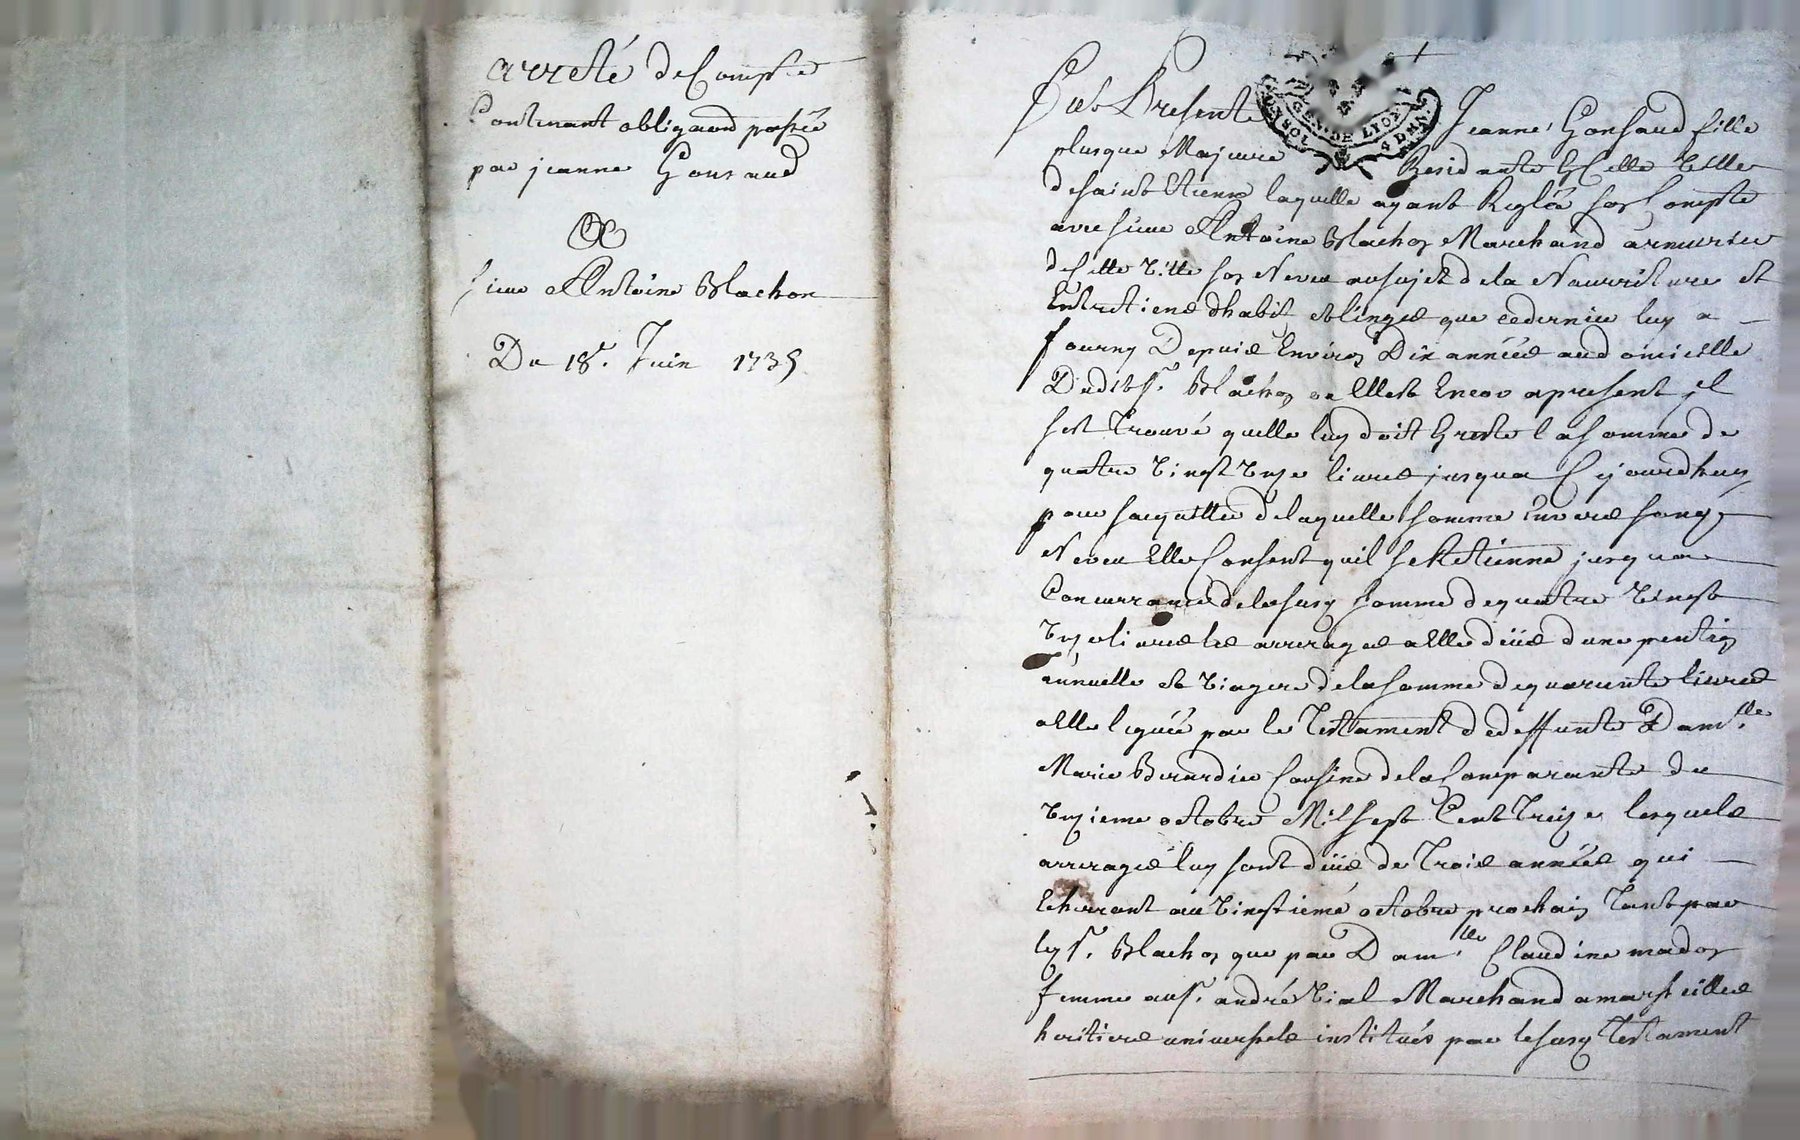 arreté de Compte
Contenant obligãon passée
par jeanne Gonsaud
A
sieur Antoine Blachon
Du 18e. Juin 1735
Fut Presente Jeanne Gonsaud fille
plusque Majeure Residante En cette Ville
de saint Etienne laquelle ayant Reglée son Compte
avec sieur Antoine Blachon Marchand armurier
de cette Ville son Neveu au sujet de la Nourriture et
Entretiens d'habit et linges que ce dernier luy a
fourny Depuis Environ Dix années au domicille
Dudit sr. Blachon ou Elle est Encor apresent il
sest trouvé quelle luy doit de reste la somme de
quatre vingt onze livres jusqua Cejourdhuy
pour sacquitter de laquelle somme Envers son
Neveu Elle Consent quil se Retienne jusqua
Concurrance de la susd somme de quatre vingt
onze livres les arrerages a Elle düs d'une pention
annuelle et viagere de la somme de quarante livres
a Elle leguée par le Testament de deffunte Damlle.
Marie Berardier Cousine de la Comparante du
onzieme octobre Mil sept Cent Treize lesquels
arrerages luy sont düs de Trois années qui
Echerront au vingtieme octobre prochain Tant par
led sr. Blachon que par Damlle. Claudine madon
femme au sr. andré Vial Marchand a marseille
heritiers universels institués par le susd Testament
GEN. DE LYON